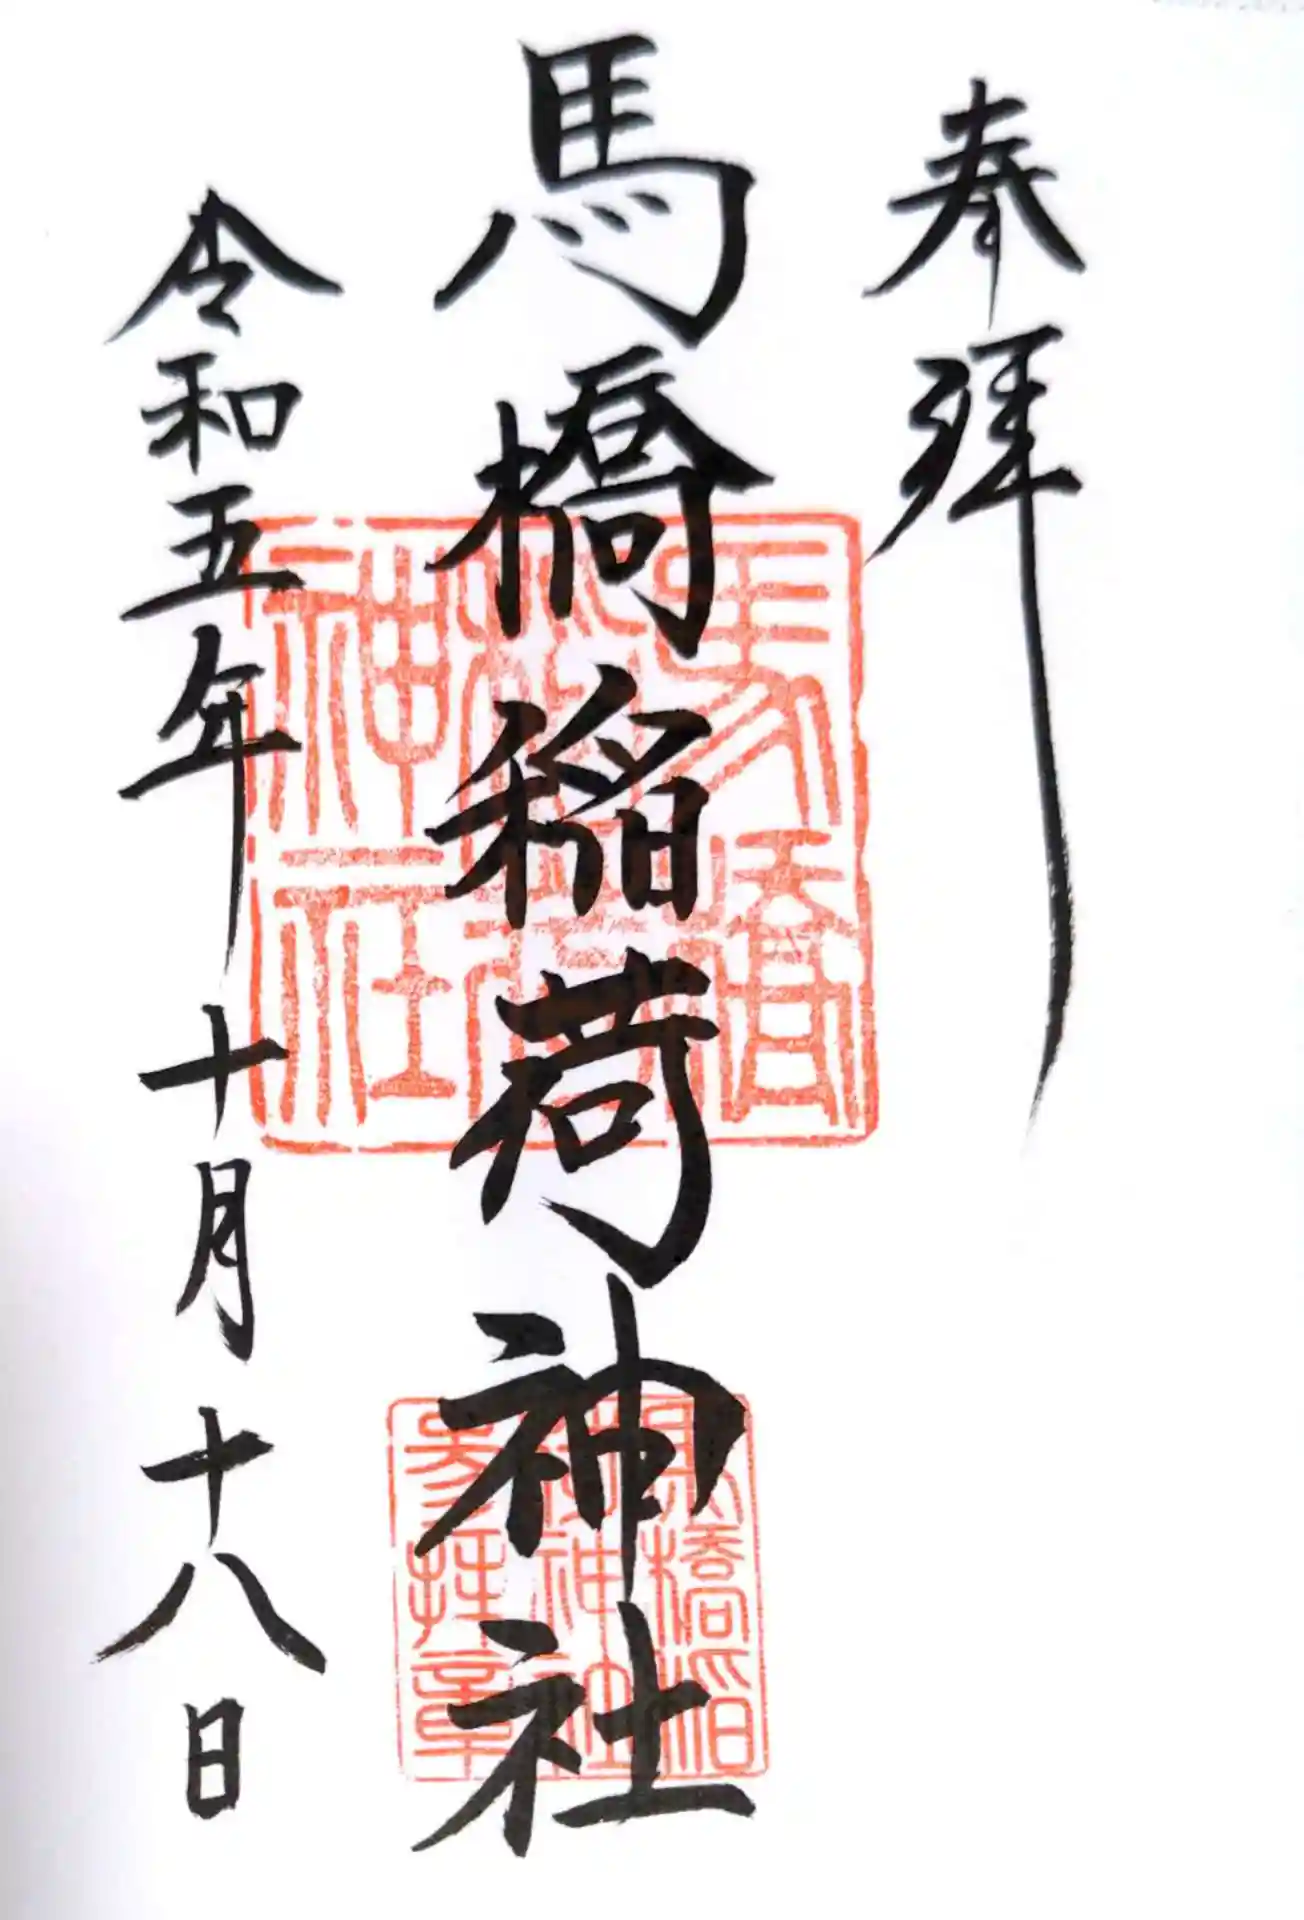 奉拝
馬橋稲荷神社
令和五年十月十八日
馬橋
稲荷
神社
馬橋稲
荷神社
参拝章